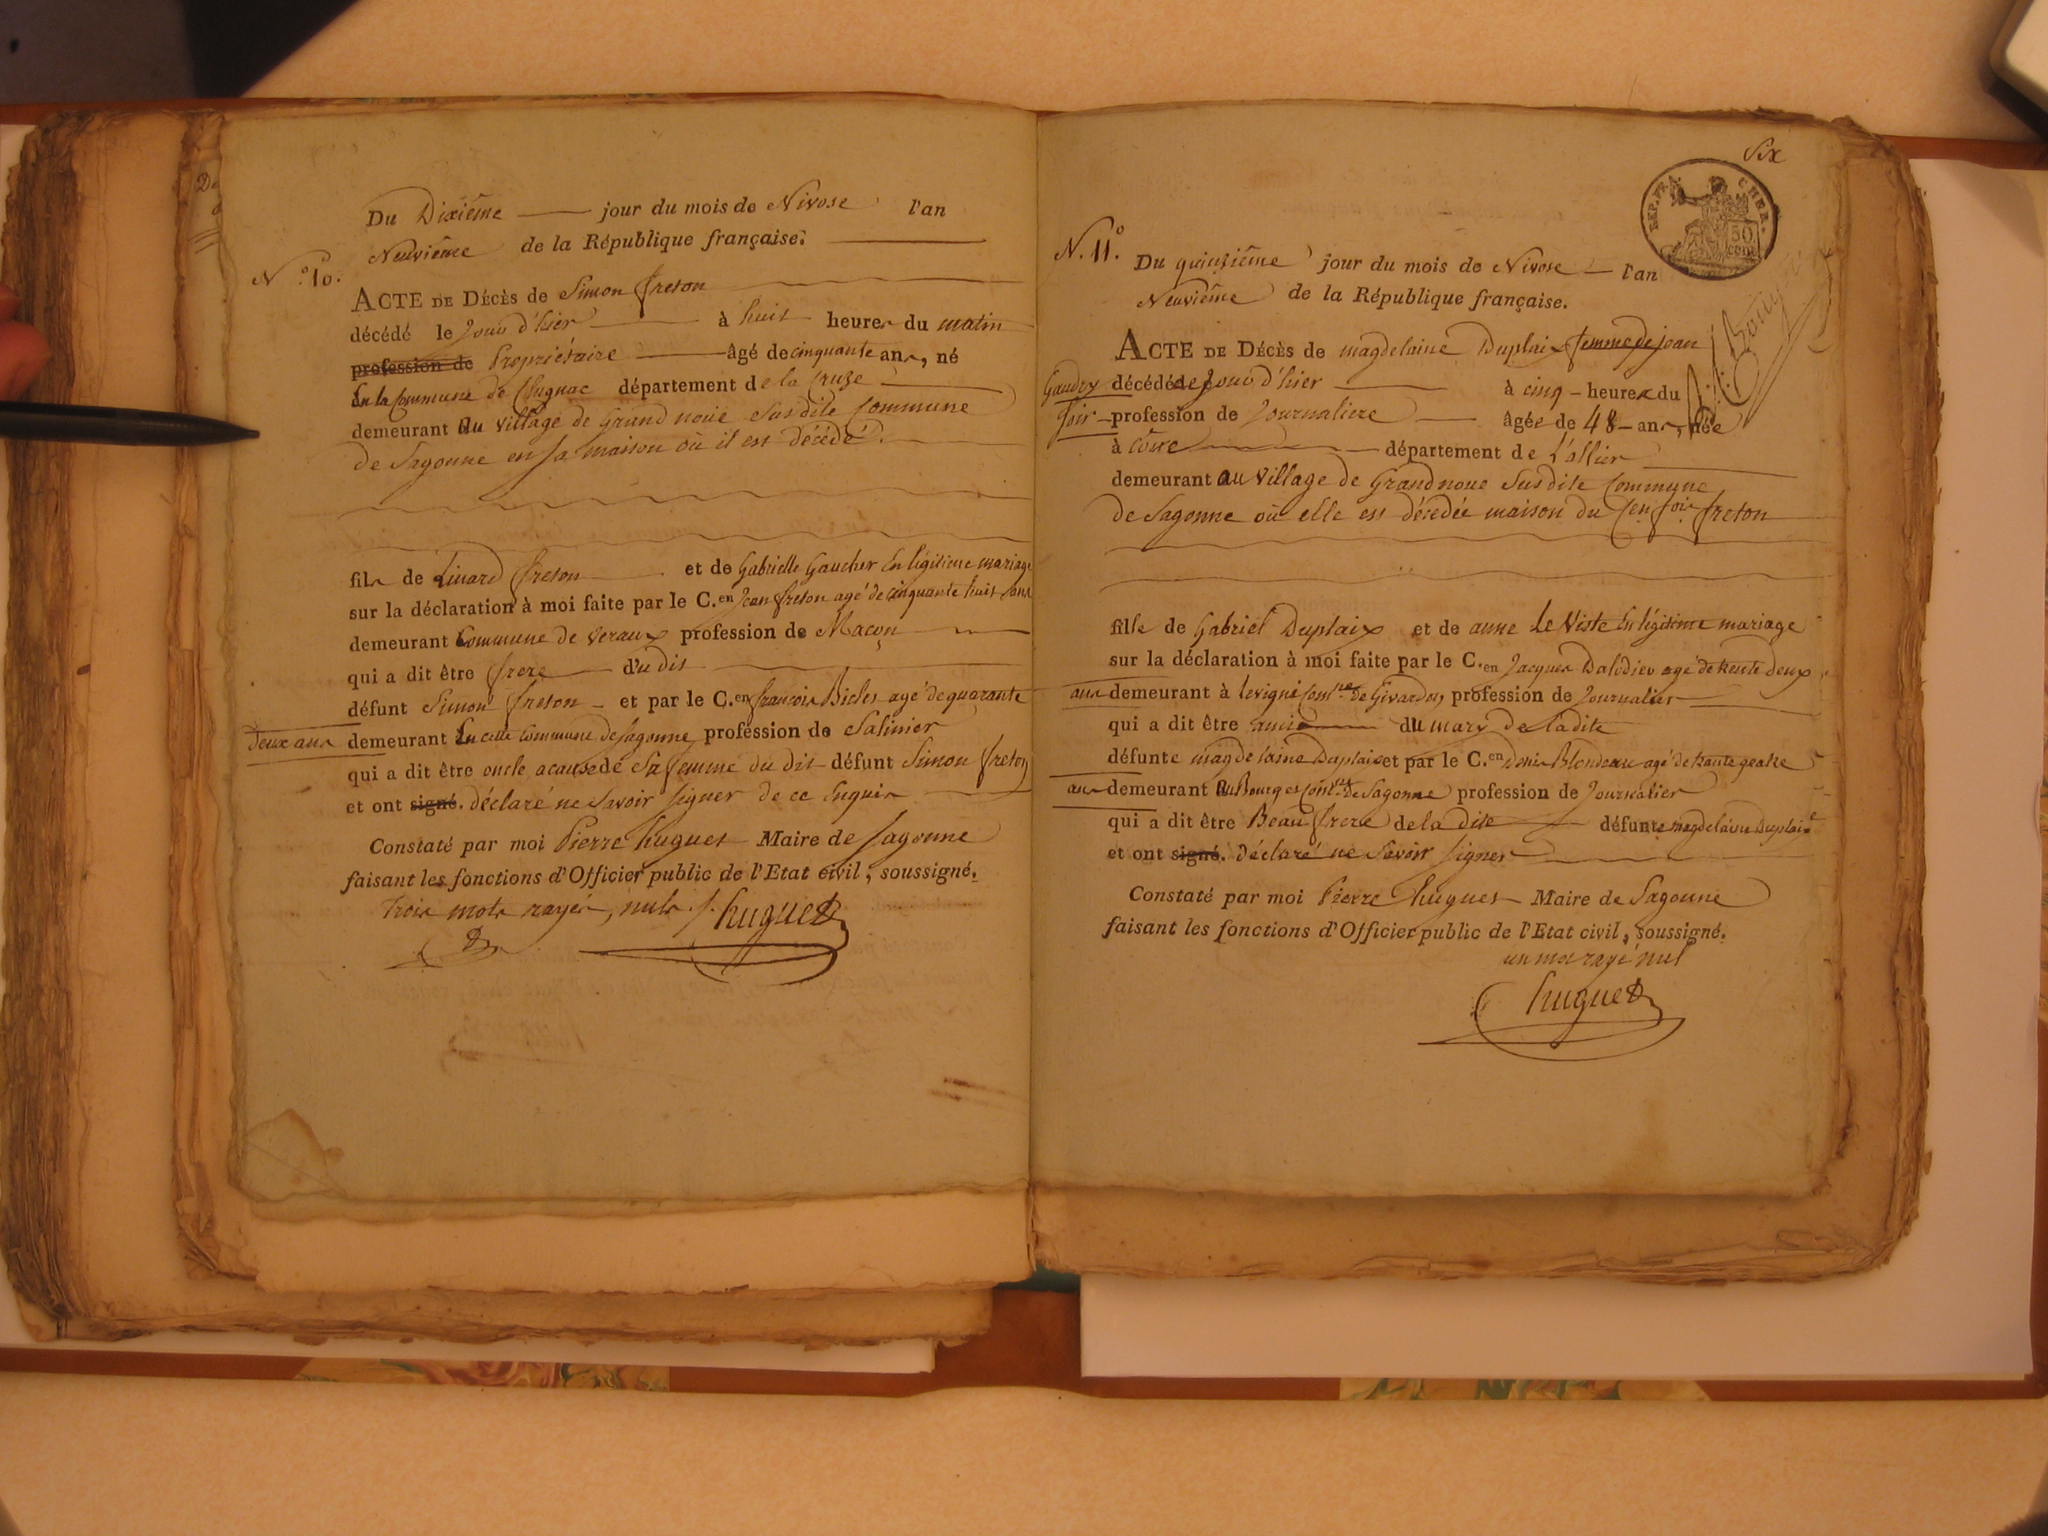 Du Dixiême jour du mois de Nivose l'an
Neuviême de la République française.
N.º 10.
ACTE DE DÉCÈS de Simon freton
décédé le Jour d'hier à huit heures du matin
profession de Propriétaire âgé de cinquante ans, né
En la Commune de département de la Cruze
demeurant Au village de Grand noue Susdite Commune
de Sagonne en sa maison où il est décédé.
fils de Linard freton et de Gabrielle Gaucher En légitime mariage
sur la déclaration à moi faite par le C.en Jean freton agé de cinquante huit ans
demeurant Commune de veraux profession de Maçon
qui a dit être frere du dit
défunt Simon freton et par le C.en françois agé de quarante
deux ans demeurant En cette commune de Sagonne profession de Salinier
qui a dit être oncle acause de Sa femme du dit défunt Simon freton
et ont signé. déclaré ne Savoir signer de ce Enquis
Constaté par moi Pierre huguet Maire de Sagonne
faisant les fonctions d'Officier public de l'Etat civil, soussigné.
trois mots rayés, nuls. huguet
Six
REP. FRA.
50 cent
N. 11.º
Du quinziême jour du mois de Nivose l'an
Neuviême de la République française.
ACTE DE DÉCÈS de magdelaine Duplaix femme de jean
Gaudry décédée le Jour d'hier à cinq heures du
soir profession de Journaliere âgée de 48 ans, née
à département de L'allier
demeurant au village de Grandnoue Susdite Commune
de Sagonne où elle est décédée maison du Cen freton
fille de Gabriel Duplaix et de anne Le Viste En légitime mariage
sur la déclaration à moi faite par le C.en Jacques agé de trente deux
ans demeurant à Levigni Comne de Givardon profession de Journalier
qui a dit être amie du mary de ladite
défunte magdelaine Duplaix et par le C.en Denis Blondeau agé de trante quatre
ans demeurant Au Bourg et Comne de Sagonne profession de Journalier
qui a dit être Beau frere de la dite défunte magdelaine Duplaix
et ont signé. déclaré ne Savoir signer
Constaté par moi Pierre huguet Maire de Sagonne
faisant les fonctions d'Officier public de l'Etat civil, soussigné.
un mot rayé nul
huguet